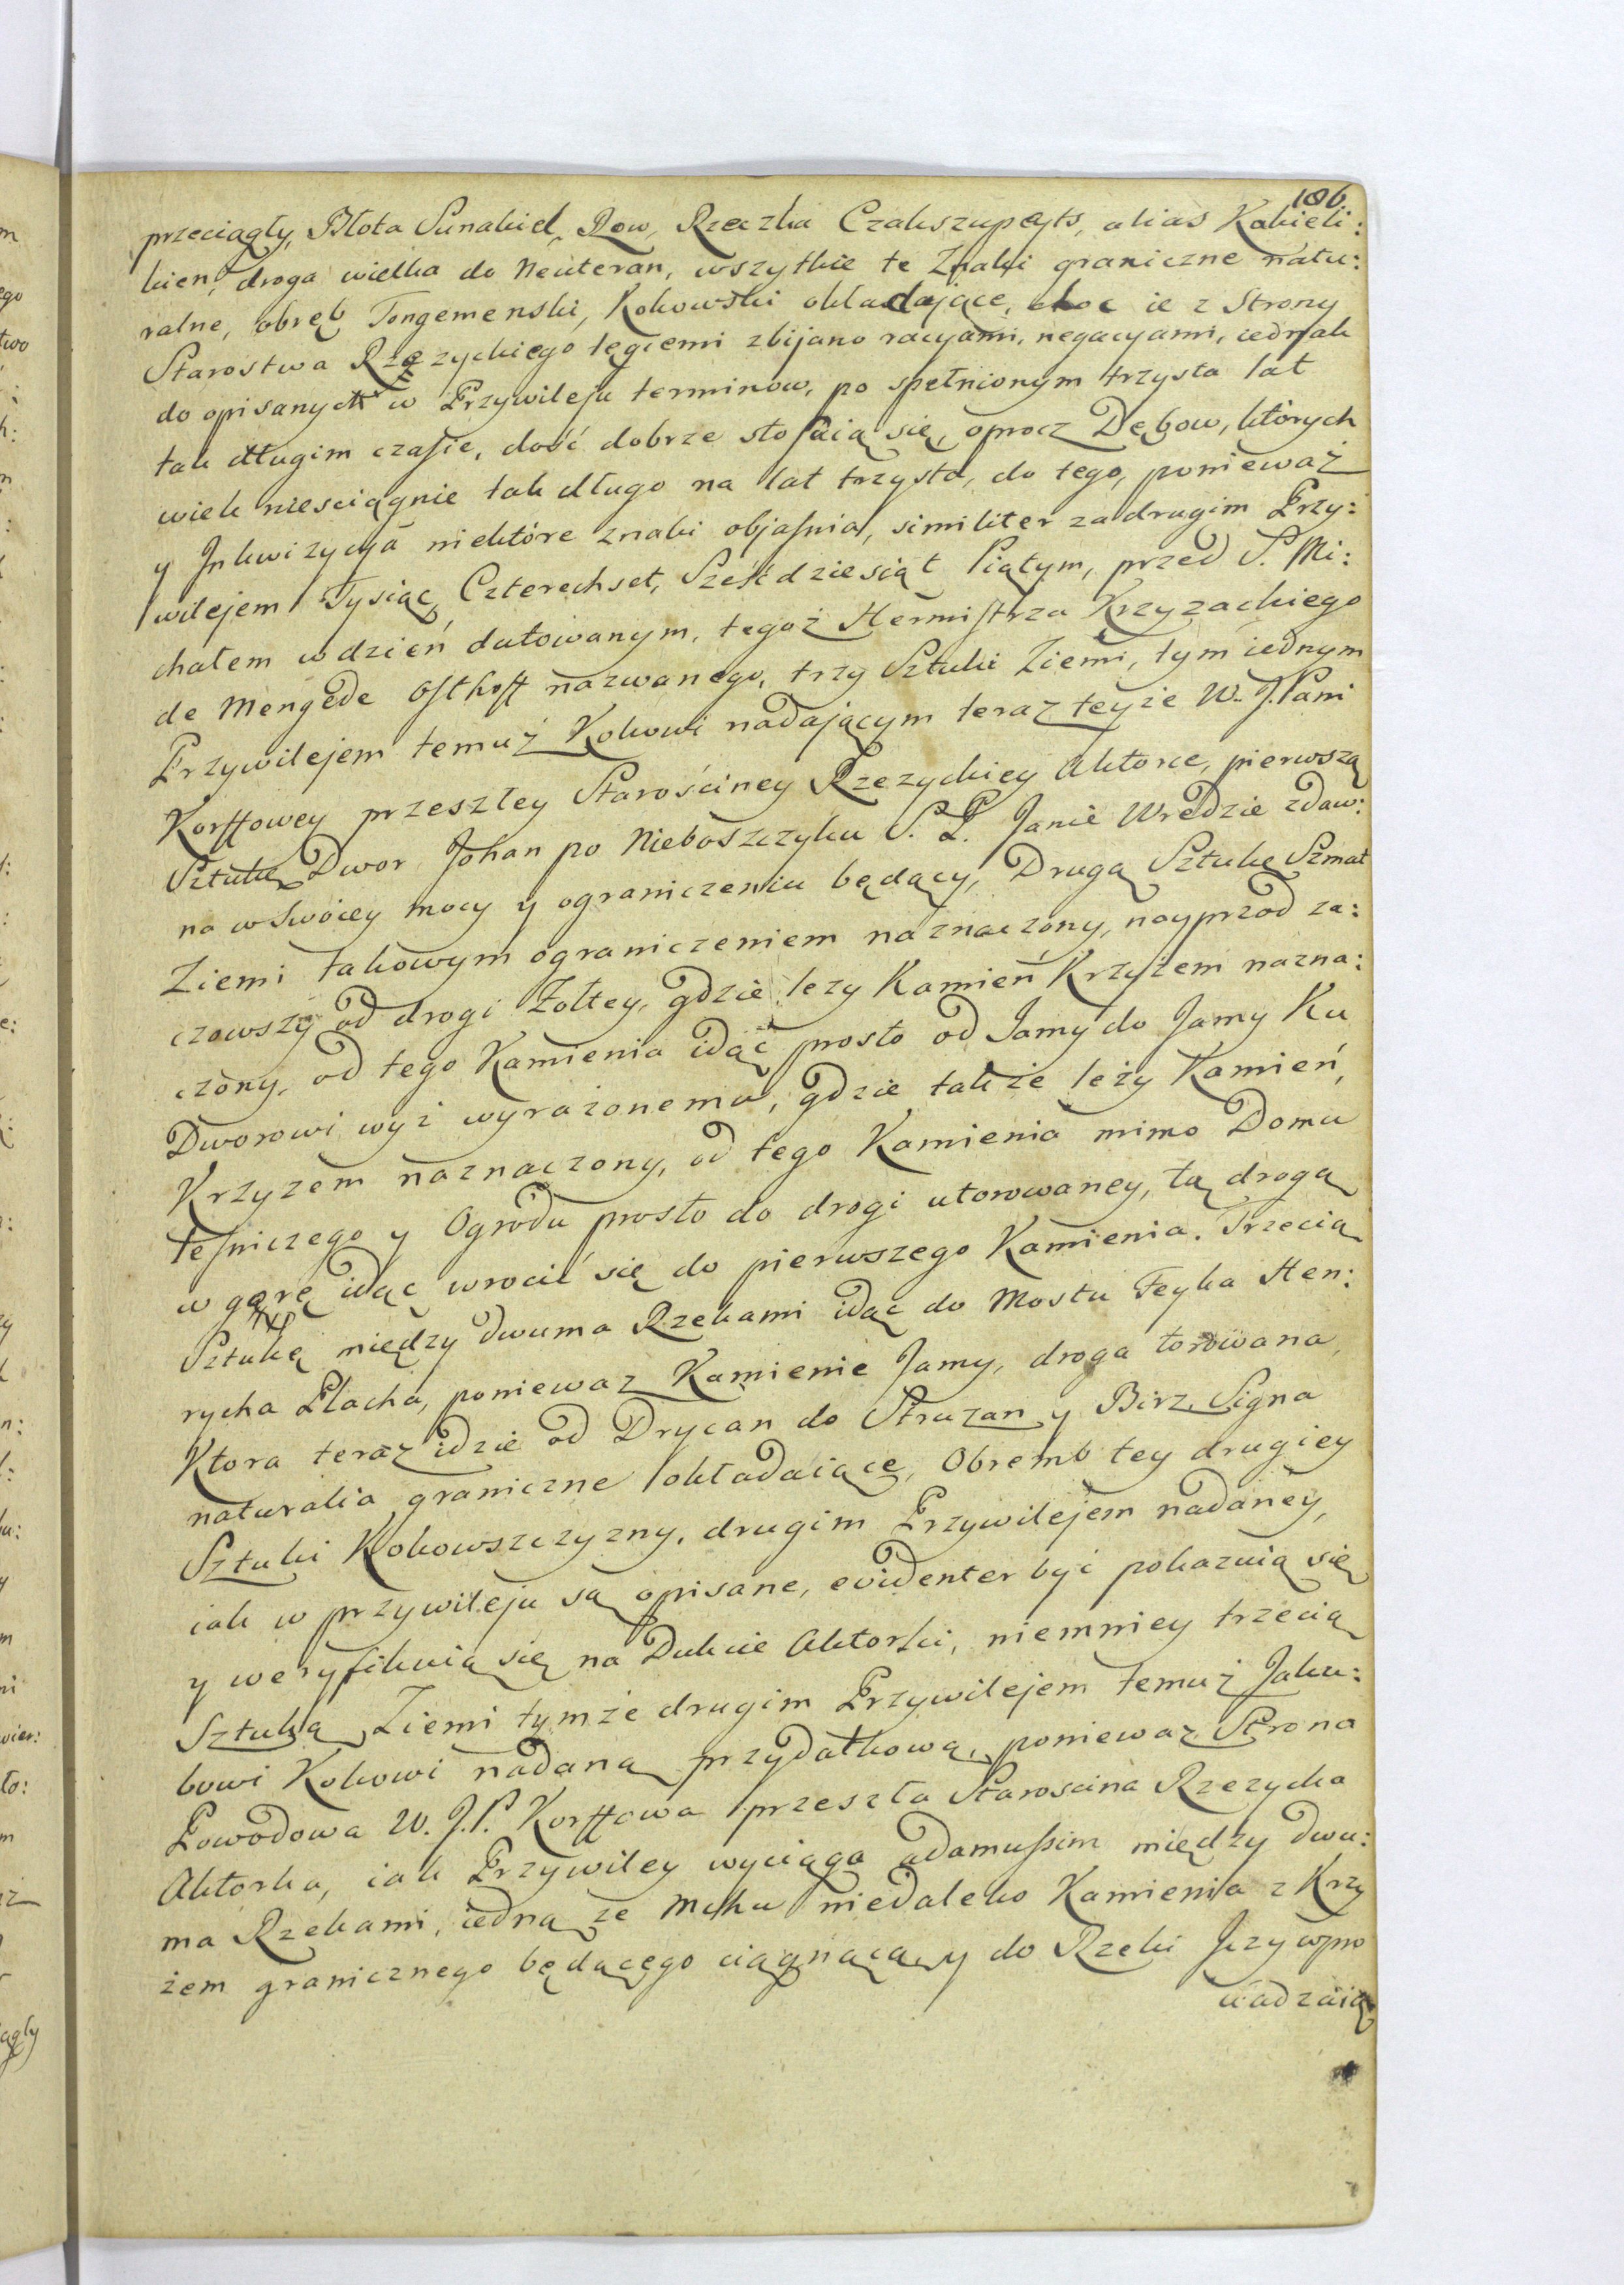 186.
przeciągły, Błota Sunakiel, Row, Rzeczka Czakszupeyts, alias Kakieli:
kien, droga wielka do Neuteran, wszytkie te Znaki graniczne natu:
ralne, obręb Tongemenski, Kokowski okładające, choc ie z Strony
Starostwa Rzęzyckiego tęgiemi zbijano racyami, negacyami, iednak
do opisanych w Przywileju terminow, po spełnionym trzysta lat
tak długim czasie, dość dobrze stosuią się, oprocz Dębow, których
wiek niesciągnie tak długo na lat trzysta, do tego, ponieważ
y Inkwizycya niektóre znaki objaśnia, similiter za drugim Przy:
wilejem Tysiąc Czterechset, Sześćdziesiąt Piątym, przed S. Mi:
chałem w dzień datowanym, tegoż Hermistrza Krzyzackiego
de Mengede Osthoff nazwanego, trzy Sztuki Ziemi, tym iednym
Przywilejem temuż Kokowi nadającym teraz teyże W. J. Pani
Korffowey przeszłey Starościney Rzezyckiey Aktorce, pierwszą
Sztukę Dwor Johan po Nieboszczyku S. P. Janie Wredzie zdaw:
na w swoiey mocy y ograniczeniu będący, Drugą Sztukę Szmat
Ziemi takowym ograniczeniem naznaczony, nayprzod za:
czowszy od drogi Żołtey, gdzie leży Kamień Krzyżem nazna:
czony, od tego Kamienia idąc prosto od Jamy do Jamy Ku
Dworowi wyż wyrażonemu, gdzie także leży Kamień,
Krzyzem naznaczony, od tego Kamienia mimo Domu
leśniczego y Ogrodu prosto do drogi utorowaney, tą drogą
w gorę idąc wrocić się do pierwszego Kamienia. Trzecią
Sztukę między dwuma Rzekami idąc do Mostu Feyka Hen:
rycha Placha, poniewaz Kamienie Jamy, droga torowana,
Ktora teraz idzie od Drycan do Struzan y Birz, Signa
naturalia graniczne okładaiące, Obremb tey drugiey
Sztuki Kokowszczyzny, drugim Przywilejem nadaney,
iak w przywileju są opisane, evidenter być pokazuią się
y weryfikuią się na Dukcie Aktorki, niemniey trzecią
Sztuką Ziemi tymże drugim Przywilejem temuż Jaku:
bowi Kokowi nadaną przydatkową, poniewaz Strona
Powodowa W. J. P. Korffowa przeszła Staroscina Rzezycka
Aktorka, iak Przywiley wyciąga adamussim między dwu:
ma Rzekami, iedną ze Mchu niedaleko Kamienia z Krzy
żem granicznego będącego ciągnącą y do Rzeki Jczy wpro
wadzaią